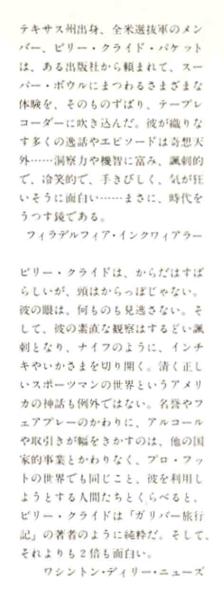 テキサス州出身、全米選抜軍のメン
バー、ビリー・クライド・パケット
は、ある出版社から頼まれて、スー
パー・ボウルにまつわるさまざまな
体験を、そのものずばり、テープレ
コーダーに吹き込んだ。彼が織りな
す多くの逸話やエピソードは奇想天
外……洞察力や機智に富み、諷刺的
で、冷笑的で、手きびしく、気が狂
いそうに面白い……まさに、時代を
うつす鏡である。
フィラデルフィア・インクワィアラー
ビリー・クライドは、からだはすば
らしいが、頭はからっぽじゃない。
彼の眼は、何ものも見逃さない。そ
して、彼の素直な観察はするどい諷
刺となり、ナイフのように、インチ
キやいかさまを切り開く。清く正し
いスポーツマンの世界というアメリ
カの神話も例外ではない。名誉やフ
ェアプレーのかわりに、アルコール
や取引きが幅をきかすのは、他の国
家的事業とかわりなく、プロ・フッ
トの世界でも同じこと、彼を利用し
ようとする人間たちとくらべると、
ビリー・クライドは「ガリバー旅行
記」の著者のように純粋だ。そして、
それよりも2倍も面白い。
ワシントン・ディリー・ニューズ